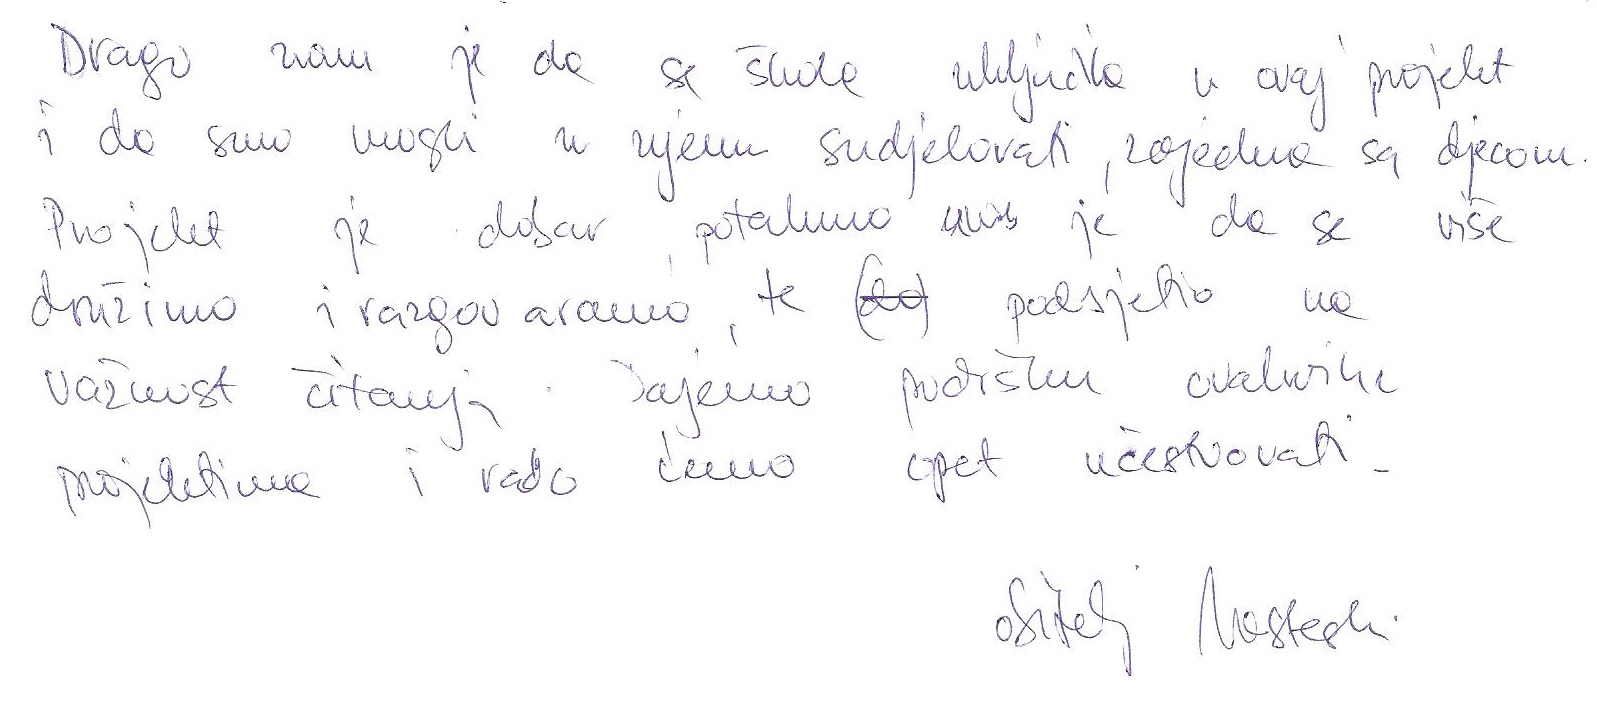 Drago nam je da se škola uključila u ovaj projekt
i da smo mogli u njemu sudjelovati, zajedno sa djecom.
Projekt je dobar, potaknuo nas je da se više
družimo i razgovaramo, te podsjetio na
važnost čitanja. Dajemo podršku ovakvim
projektima i rado ćemo opet učestvovati.
obitelj